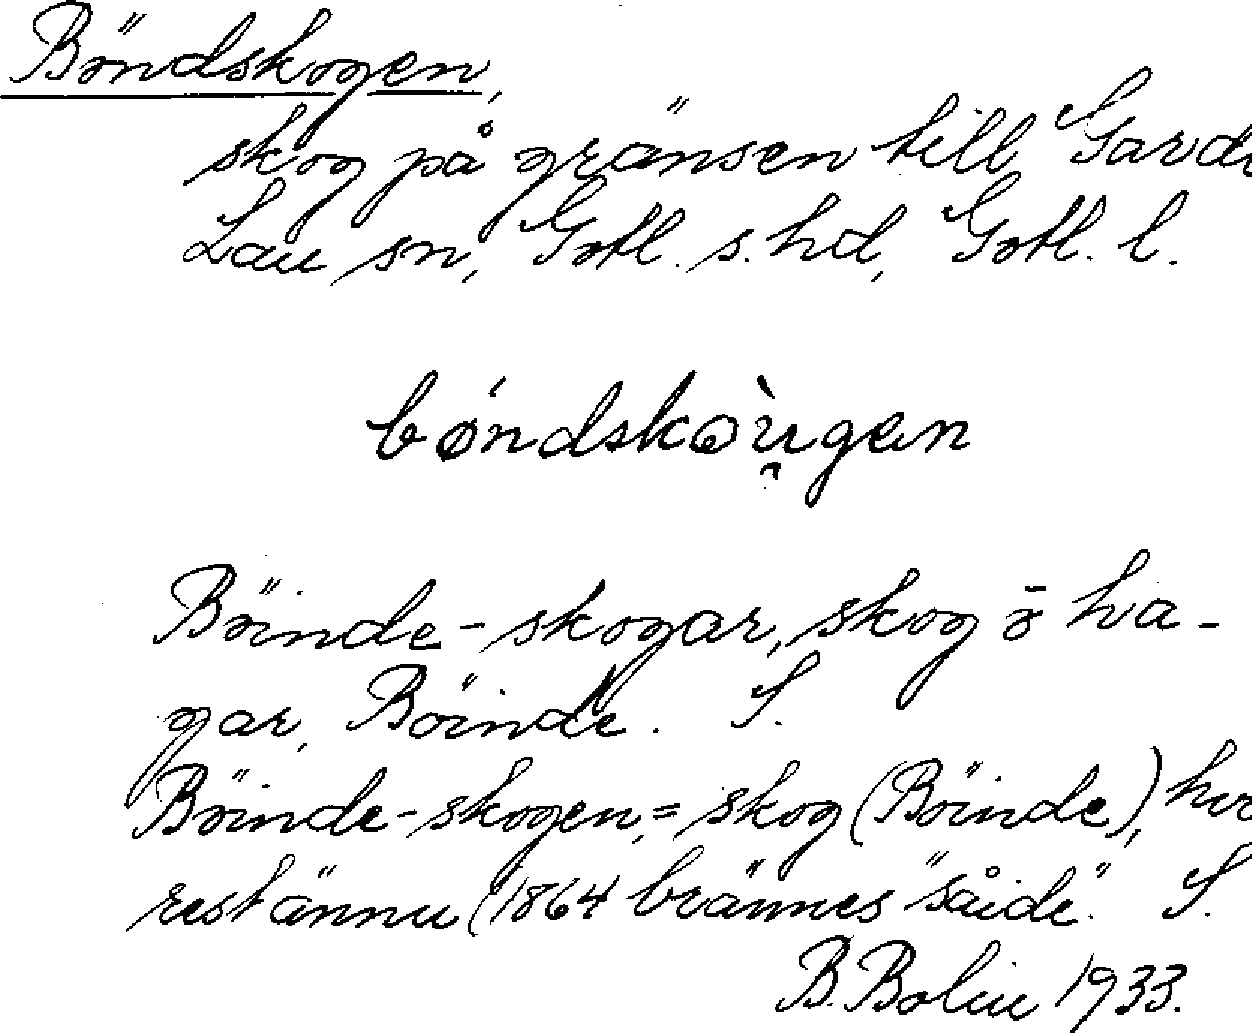 Böndskogen,
skog på gränsen till Garda
Lau sn, Gotl. s. hd, Gotl. l.
bøndskoùgen
Böinde-skogar, skog o ha-
gar, Böinde. S.
Böinde-skogen, = skog (Böinde),
rest ännu (1864 brännes "såide". S.
B. Bolin 1933.